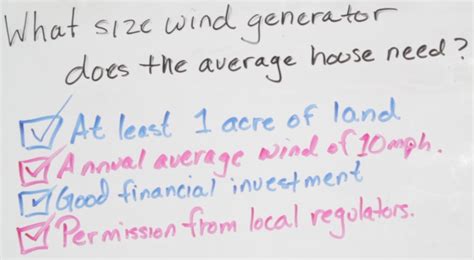 What size wind generator
does the average house need?
At least 1 acre of land
Annual average wind of 10mph.
Good financial investment
Permission from local regulators.